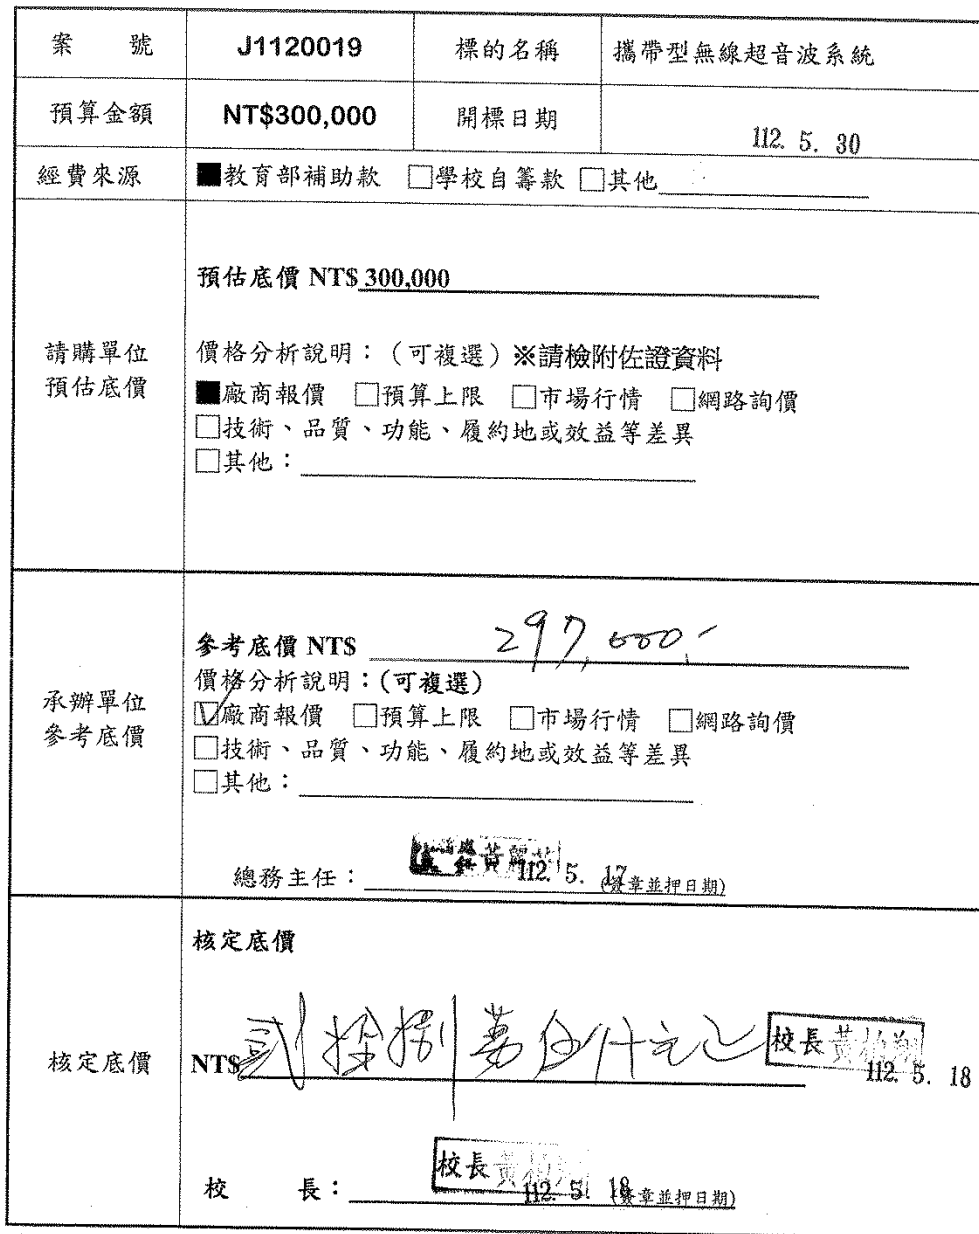 案 號 J1120019 標的名稱 攜帶型無線超音波系統
預算金額 NT$300,000 開標日期 112. 5. 30
經費來源 ■教育部補助款 □學校自籌款 □其他
預估底價 NT$ 300,000
請購單位
預估底價
價格分析說明：（可複選）※請檢附佐證資料
■廠商報價 □預算上限 □市場行情 □網路詢價
□技術、品質、功能、履約地或效益等差異
□其他：
承辦單位
參考底價
參考底價 NT$ 297,000.-
價格分析說明：(可複選)
☑廠商報價 □預算上限 □市場行情 □網路詢價
□技術、品質、功能、履約地或效益等差異
□其他：
總務主任： 黃麗 112. 5. 17 (簽章並押日期)
核定底價
核定底價
NT$ 貳拾捌萬伍仟元正 校長 黃柏翔 112. 5. 18
校 長： 校長 黃柏翔 112. 5. 18 (簽章並押日期)